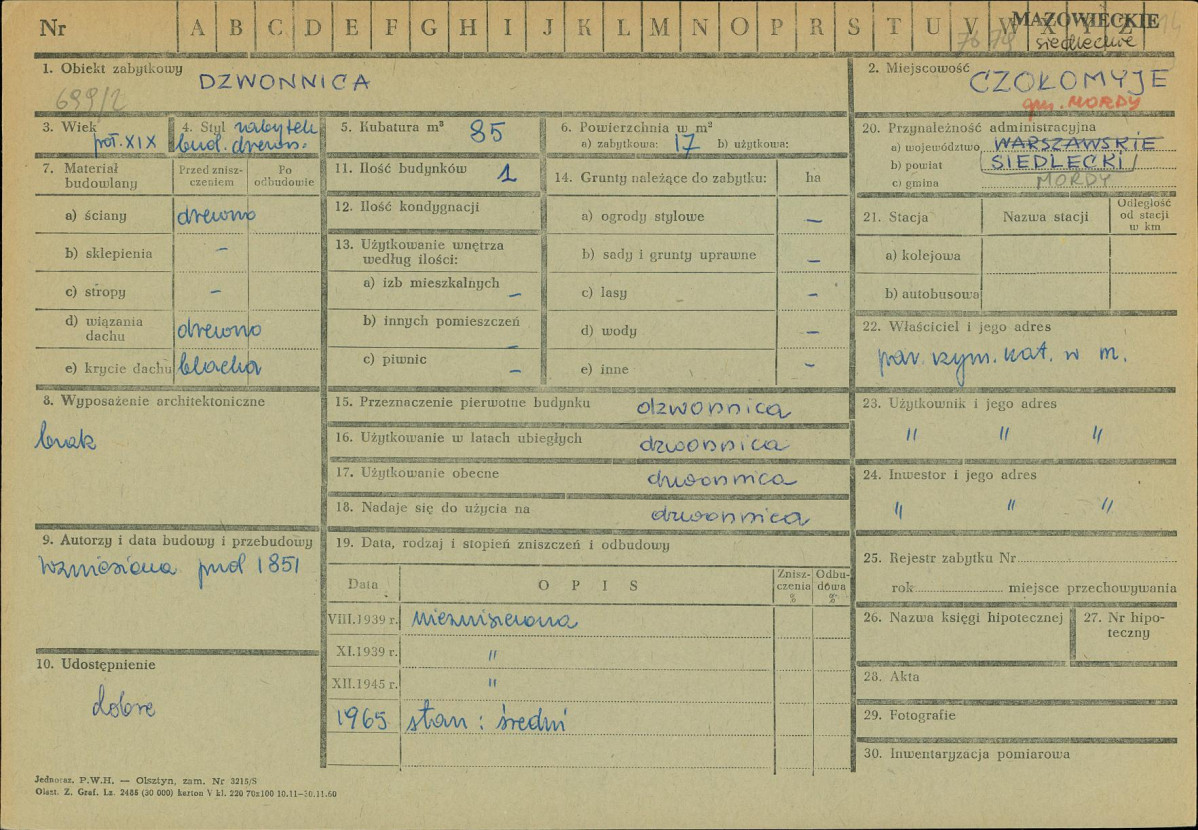 Nr A B C D E F G H I J K L M N O P R S T U V W X Y Z
MAZOWIECKIE
siedleckie
76 78
14
1. Obiekt zabytkowy DZWONNICA
699/2
2. Miejscowość CZOŁOMYJE
gm. MORDY
3. Wiek poł. XIX
4. Styl zabytek bud. drewn.
5. Kubatura m³ 85
6. Powierzchnia w m²
a) zabytkowa: 17 b) użytkowa:
7. Materiał budowlany
Przed zniszczeniem
Po odbudowie
a) ściany drewno
b) sklepienia –
c) stropy –
d) wiązania dachu drewno
e) krycie dachu blacha
8. Wyposażenie architektoniczne
brak
9. Autorzy i data budowy i przebudowy
wzniesiona przed 1851
10. Udostępnienie
dobre
11. Ilość budynków 1
12. Ilość kondygnacji
13. Użytkowanie wnętrza według ilości:
a) izb mieszkalnych –
b) innych pomieszczeń –
c) piwnic –
14. Grunty należące do zabytku: ha
a) ogrody stylowe –
b) sady i grunty uprawne –
c) lasy –
d) wody –
e) inne –
15. Przeznaczenie pierwotne budynku dzwonnica
16. Użytkowanie w latach ubiegłych dzwonnica
17. Użytkowanie obecne dzwonnica
18. Nadaje się do użycia na dzwonnica
19. Data, rodzaj i stopień zniszczeń i odbudowy
Data O P I S Zniszczenia % Odbudowa %
VIII.1939 r. niezniszczona
XI.1939 r. "
XII.1945 r. "
1965 stan: średni
20. Przynależność administracyjna
a) województwo WARSZAWSKIE
b) powiat SIEDLECKI
c) gmina MORDY
21. Stacja Nazwa stacji Odległość od stacji w km
a) kolejowa
b) autobusowa
22. Właściciel i jego adres
par. rzym. kat. w m.
23. Użytkownik i jego adres
" " "
24. Inwestor i jego adres
" " "
25. Rejestr zabytku Nr
rok miejsce przechowywania
26. Nazwa księgi hipotecznej
27. Nr hipoteczny
28. Akta
29. Fotografie
30. Inwentaryzacja pomiarowa
Jednoraz. P.W.H. — Olsztyn, zam. Nr 3215/S
Olszt. Z. Graf. Lz. 2486 (30 000) karton V kl. 220 70x100 10.11–30.11.60